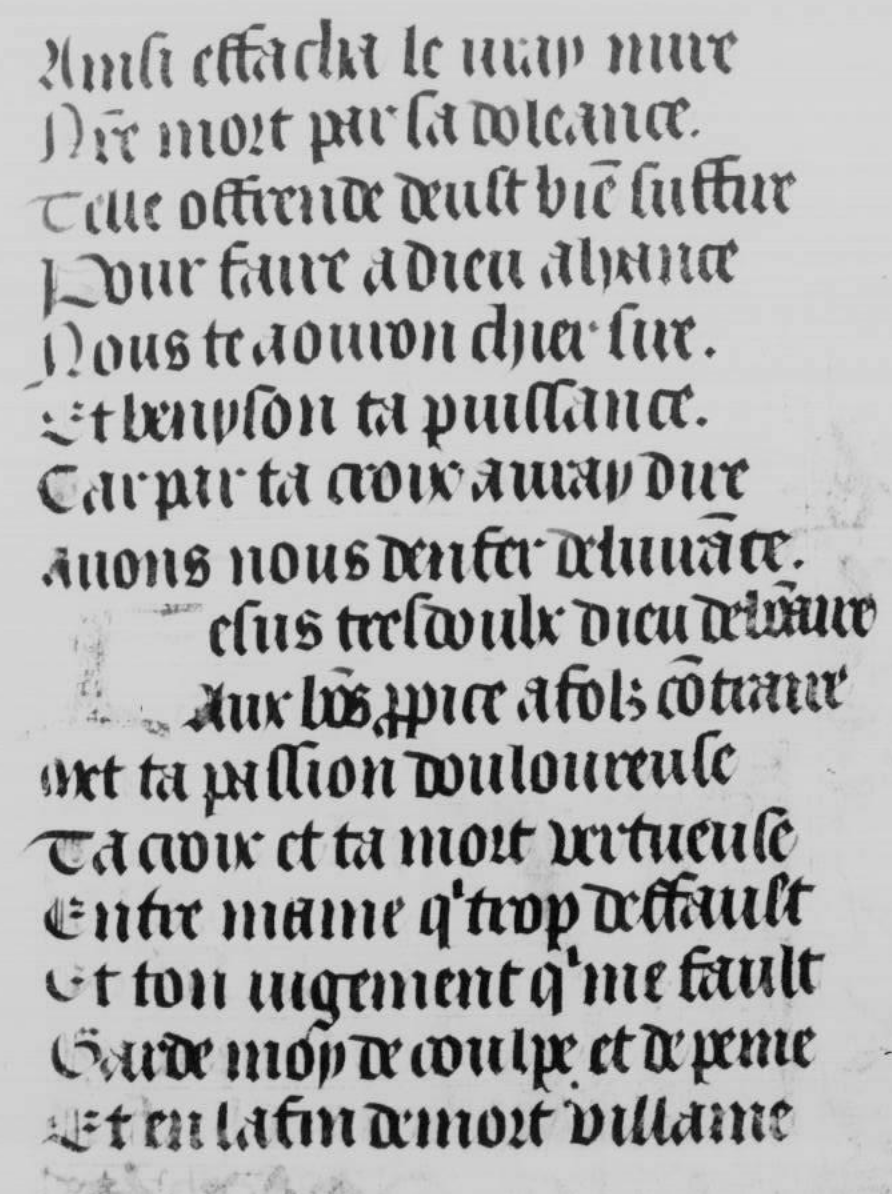 Ainsi effacha le vray mire
Nr̄e mort par sa doleance.
Telle offrende deust biē suffire
Pour faire a dieu aliance
Nous te aouron chier sire.
Et benyson ta puissance.
Car par ta croix au vray dire
Auons nous denfer deliurāce.
esus tresdoulx dieu debōnaire
Aux bōs ꝓpice a folz cōtraire
Met ta passion douloureuse
Ta croix et ta mort vertueuse
Entre mame qⁱ trop deffault
Et ton iugement qⁱ me fault
Garde moy de coulpe et de peine
Et en la fin de mort villaine